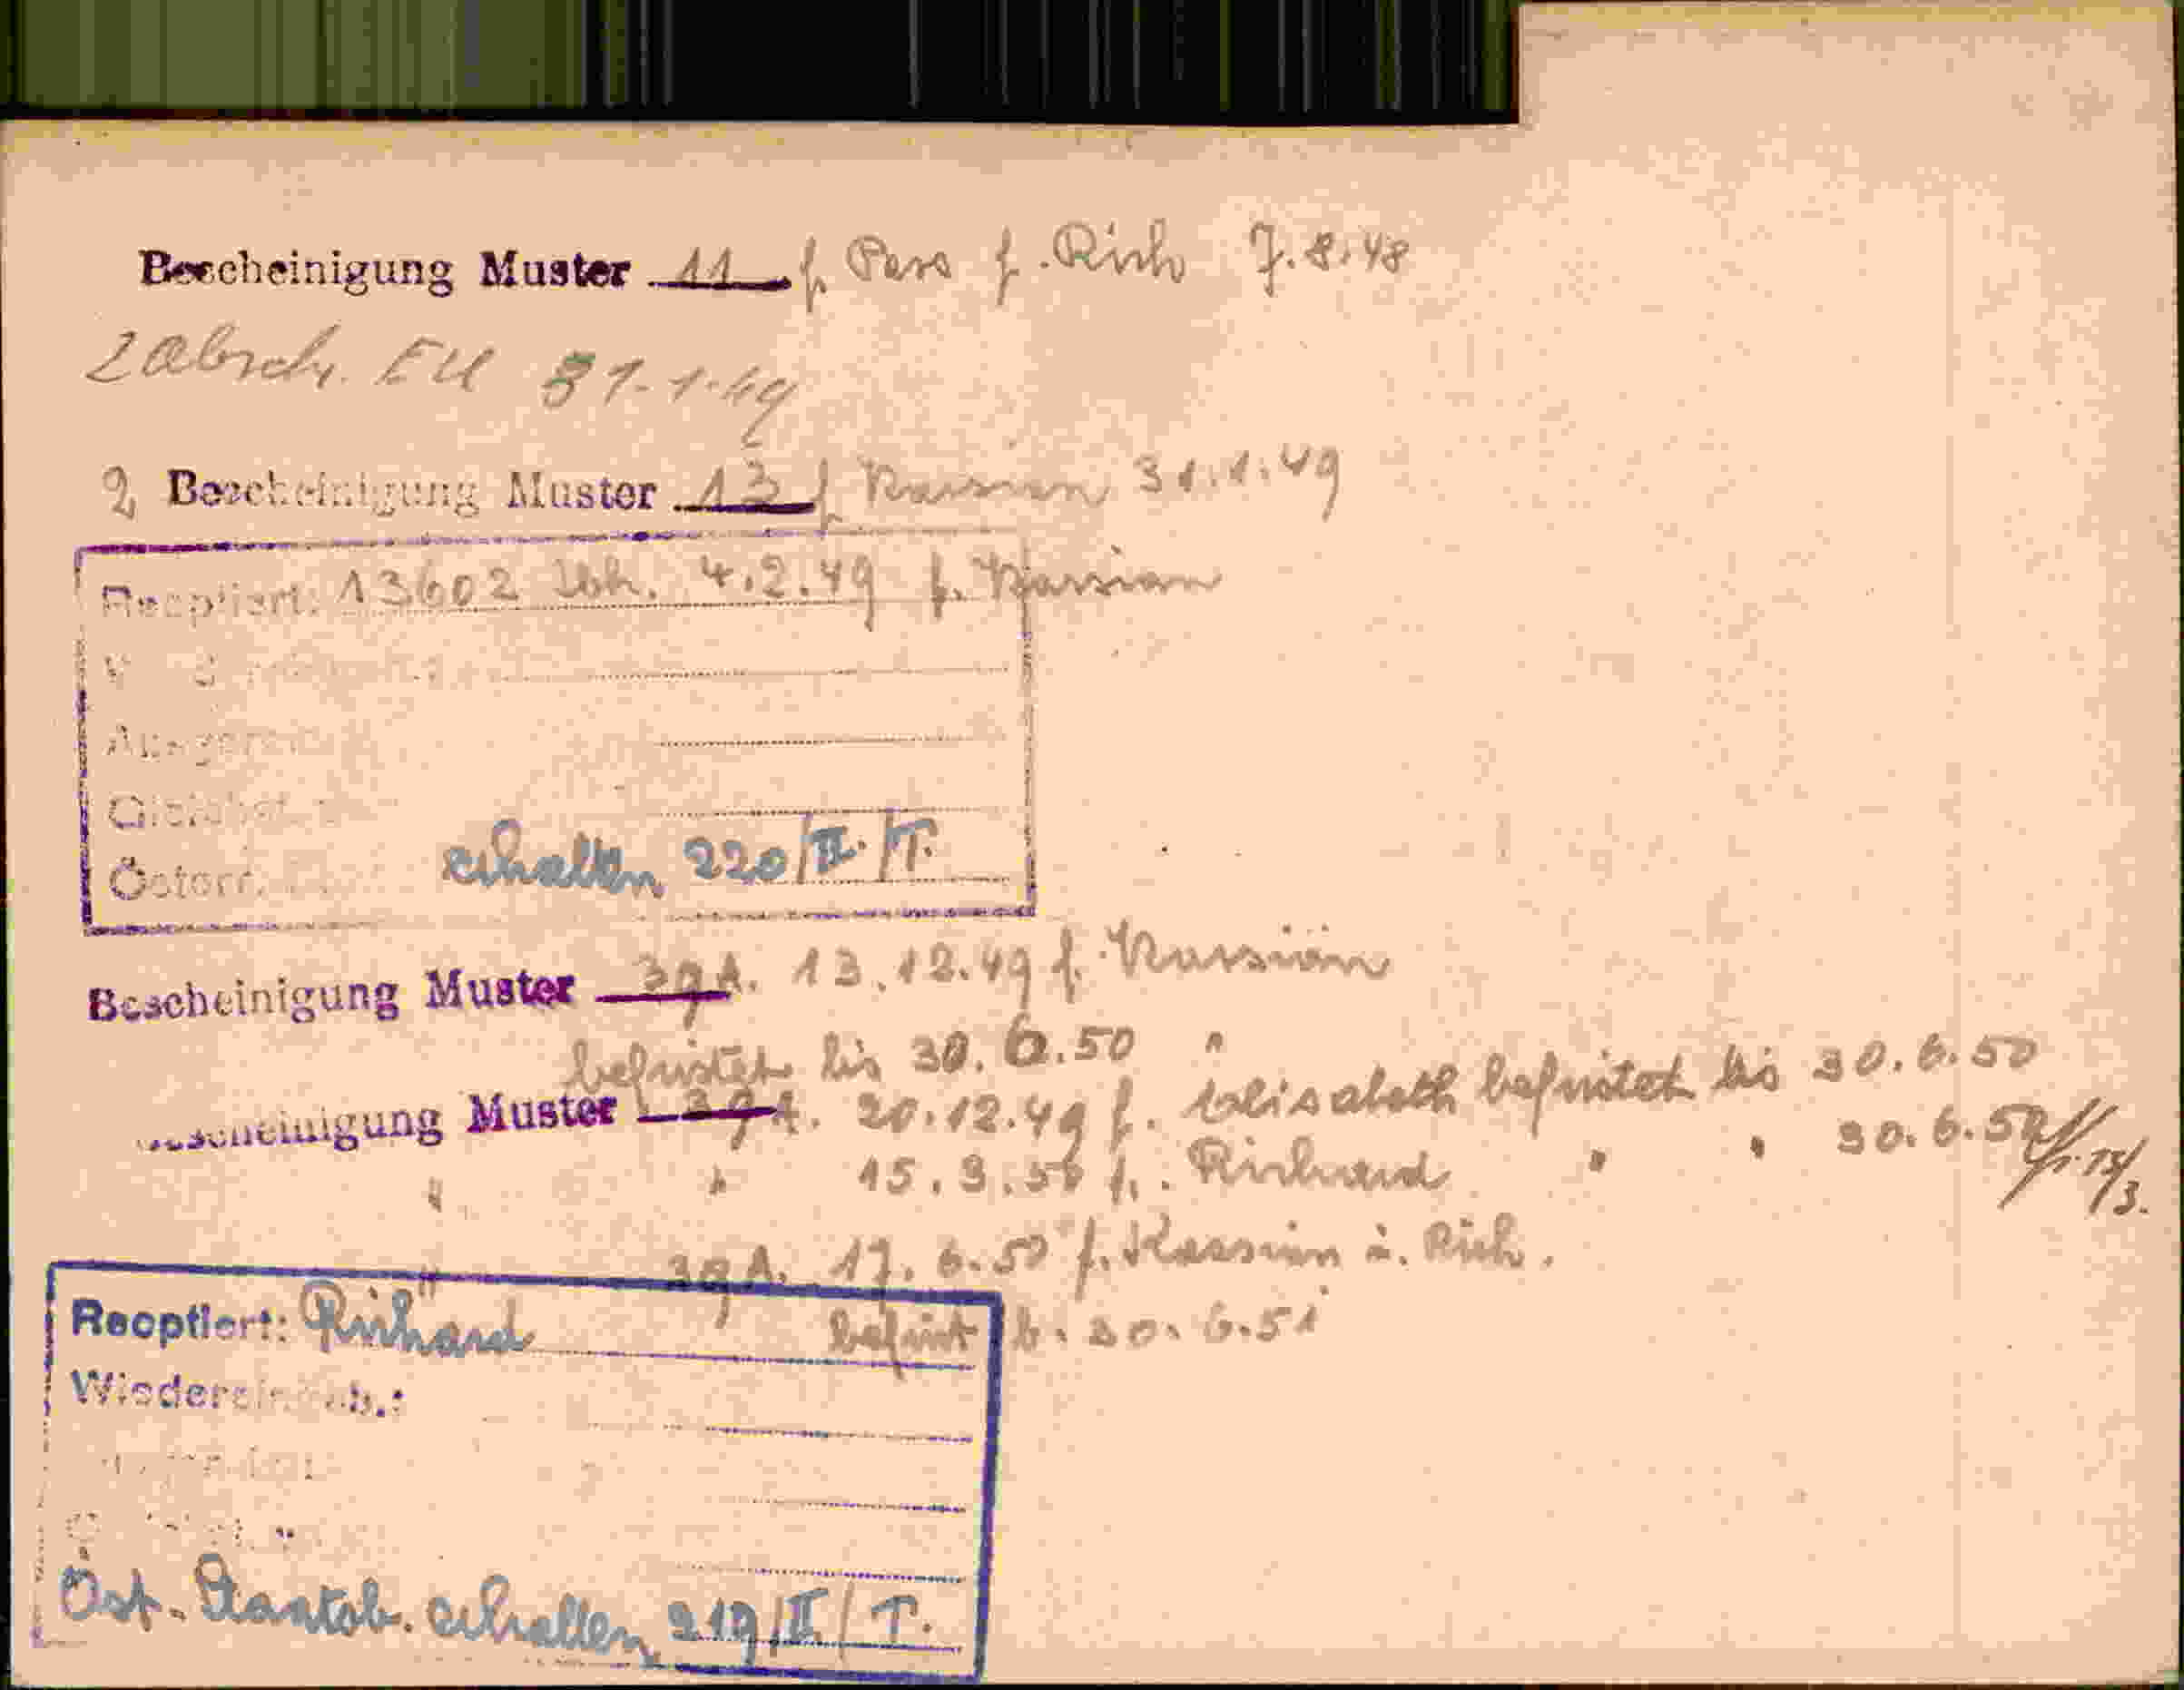 Bescheinigung Muster 11 f. Pass f. Rich 7.8.48
2 Absch. EU 31.1.49
2 Bescheinigung Muster 13 f Kassian 31.1.49
Reoptiert: 13602 Ibk. 4.2.49 f. Kassian
Österr. erhalten 220/II./T.
Bescheinigung Muster 39A. 13.12.49 f. Kassian
befristet bis 30.6.50 "
Bescheinigung Muster 39A. 20.12.49 f. Elisabeth befristet bis 30.6.50
" " 15.3.50 f. Richard " " 30.6.50 15/3.
" 39A. 17.6.50 f. Kassian u. Rich.
Reoptiert: Richard befrist b. 30.6.51
Wiedereinb.:
Öst. Staatsb. erhalten 219/II/T.